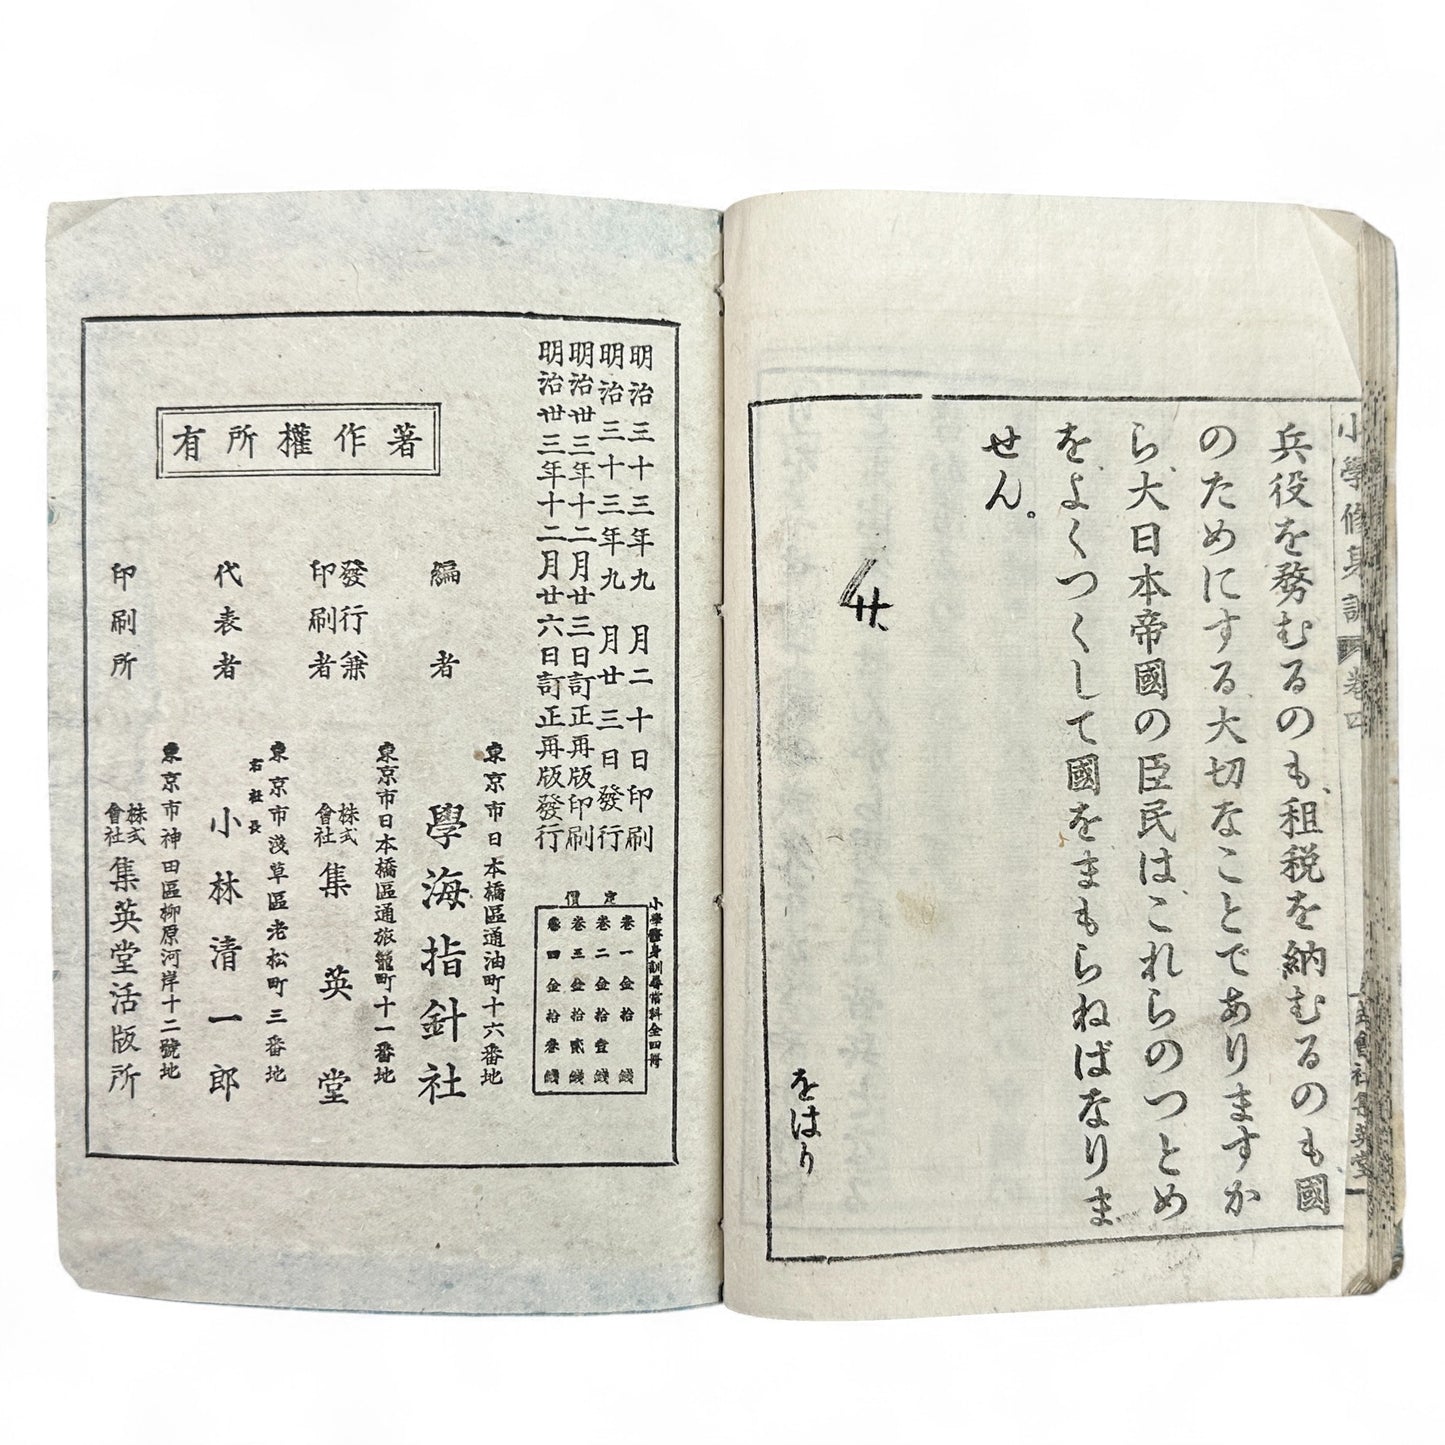 小學修身訓 卷四
兵役を務むるのも、租税を納むるのも國
のためにする大切なことでありますか
ら、大日本帝國の臣民は、これらのつとめ
をよくつくして國をまもらねばなりま
せん。
をはり
明治三十三年九月二十日印刷
明治三十三年九月廿三日發行
明治卅三年十二月廿三日訂正再版印刷
明治卅三年十二月廿六日訂正再版發行
小學修身訓尋常科全四冊
定價
卷一金拾錢
卷二金拾壹錢
卷三金拾貳錢
卷四金拾叁錢
著作權所有
東京市日本橋區通油町十六番地
編者 學海指針社
東京市日本橋區通旅籠町十一番地
發行兼印刷者 株式會社集英堂
東京市淺草區老松町三番地
右社長
代表者 小林清一郎
東京市神田區柳原河岸十二號地
印刷所 株式會社集英堂活版所